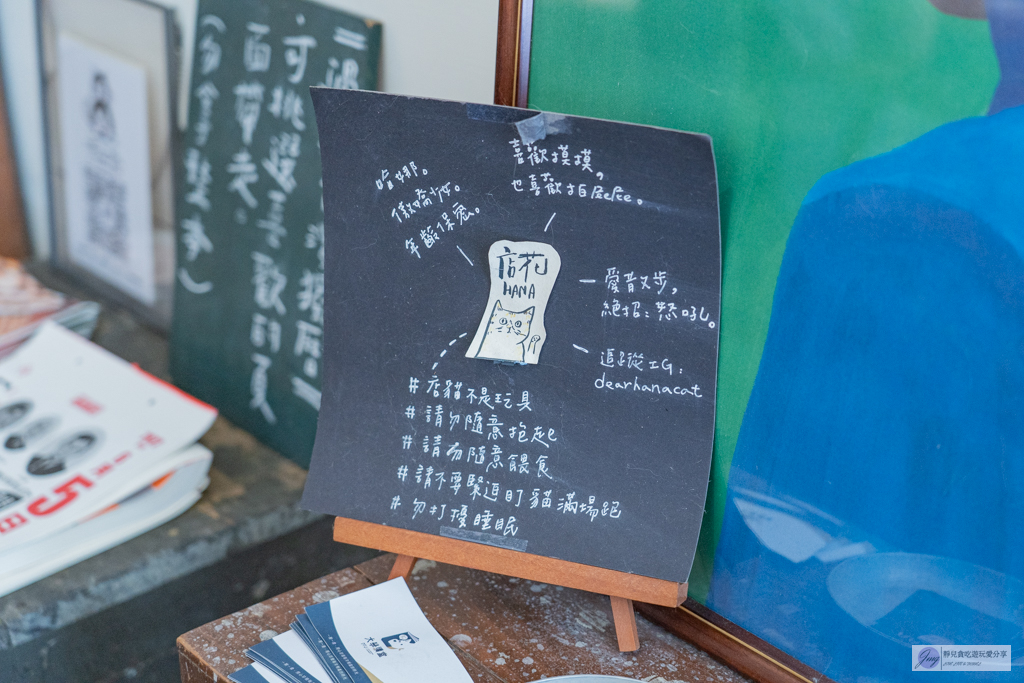 可挑選喜歡的頁
面帶走。
喜歡摸摸，
也喜歡拍屁屁。
哈娜。
傲嬌少女。
年齡保密。
店花
HANA
愛散步，
絕招：怒吼。
追蹤IG：
dearhanacat
#店貓不是玩具
#請勿隨意抱起
#請勿隨意餵食
#請不要緊迫盯貓滿場跑
#勿打擾睡眠
靜兒貪吃遊玩愛分享